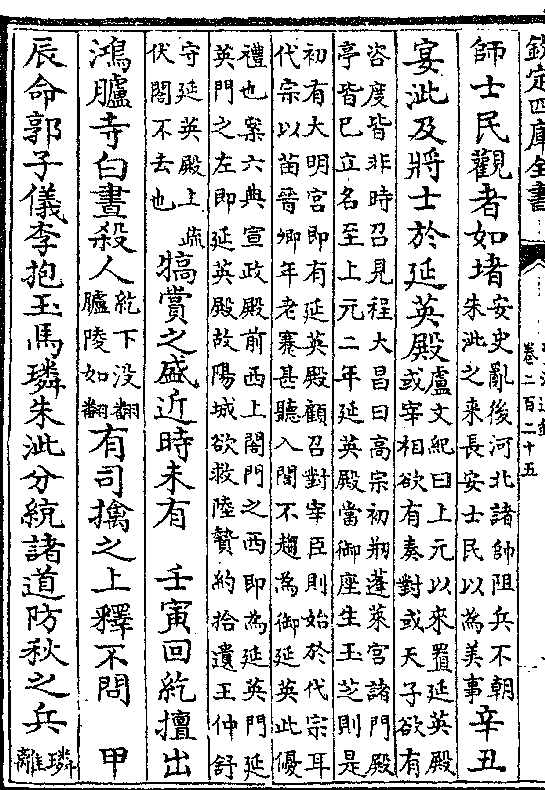 欽定四庫全書
卷二百二十五
師士民觀者如堵安史亂後河北諸帥阻兵不朝朱泚之來長安士民以為美事辛丑
宴泚及將士於延英殿盧文紀曰上元以來置延英殿或宰相欲有奏對或天子欲有
咨度皆非時召見程大昌曰高宗初剏蓬萊宮諸門殿
亭皆已立名至上元二年延英殿當御座生玉芝則是
初有大明宮即有延英殿顧召對宰臣則始於代宗耳
代宗以苗晉卿年老蹇甚聽入閤不趨為御延英此優
禮也案六典宣政殿前西上閤門之西即為延英門延
英門之左即延英殿故陽城欲救陸贄約拾遺王仲舒
守延英殿上疏伏閤不去也犒賞之盛近時未有　壬寅回紇擅出
鴻臚寺白晝殺人紇下没翻臚陵如翻有司擒之上釋不問　甲
辰命郭子儀李抱玉馬璘朱泚分統諸道防秋之兵璘離